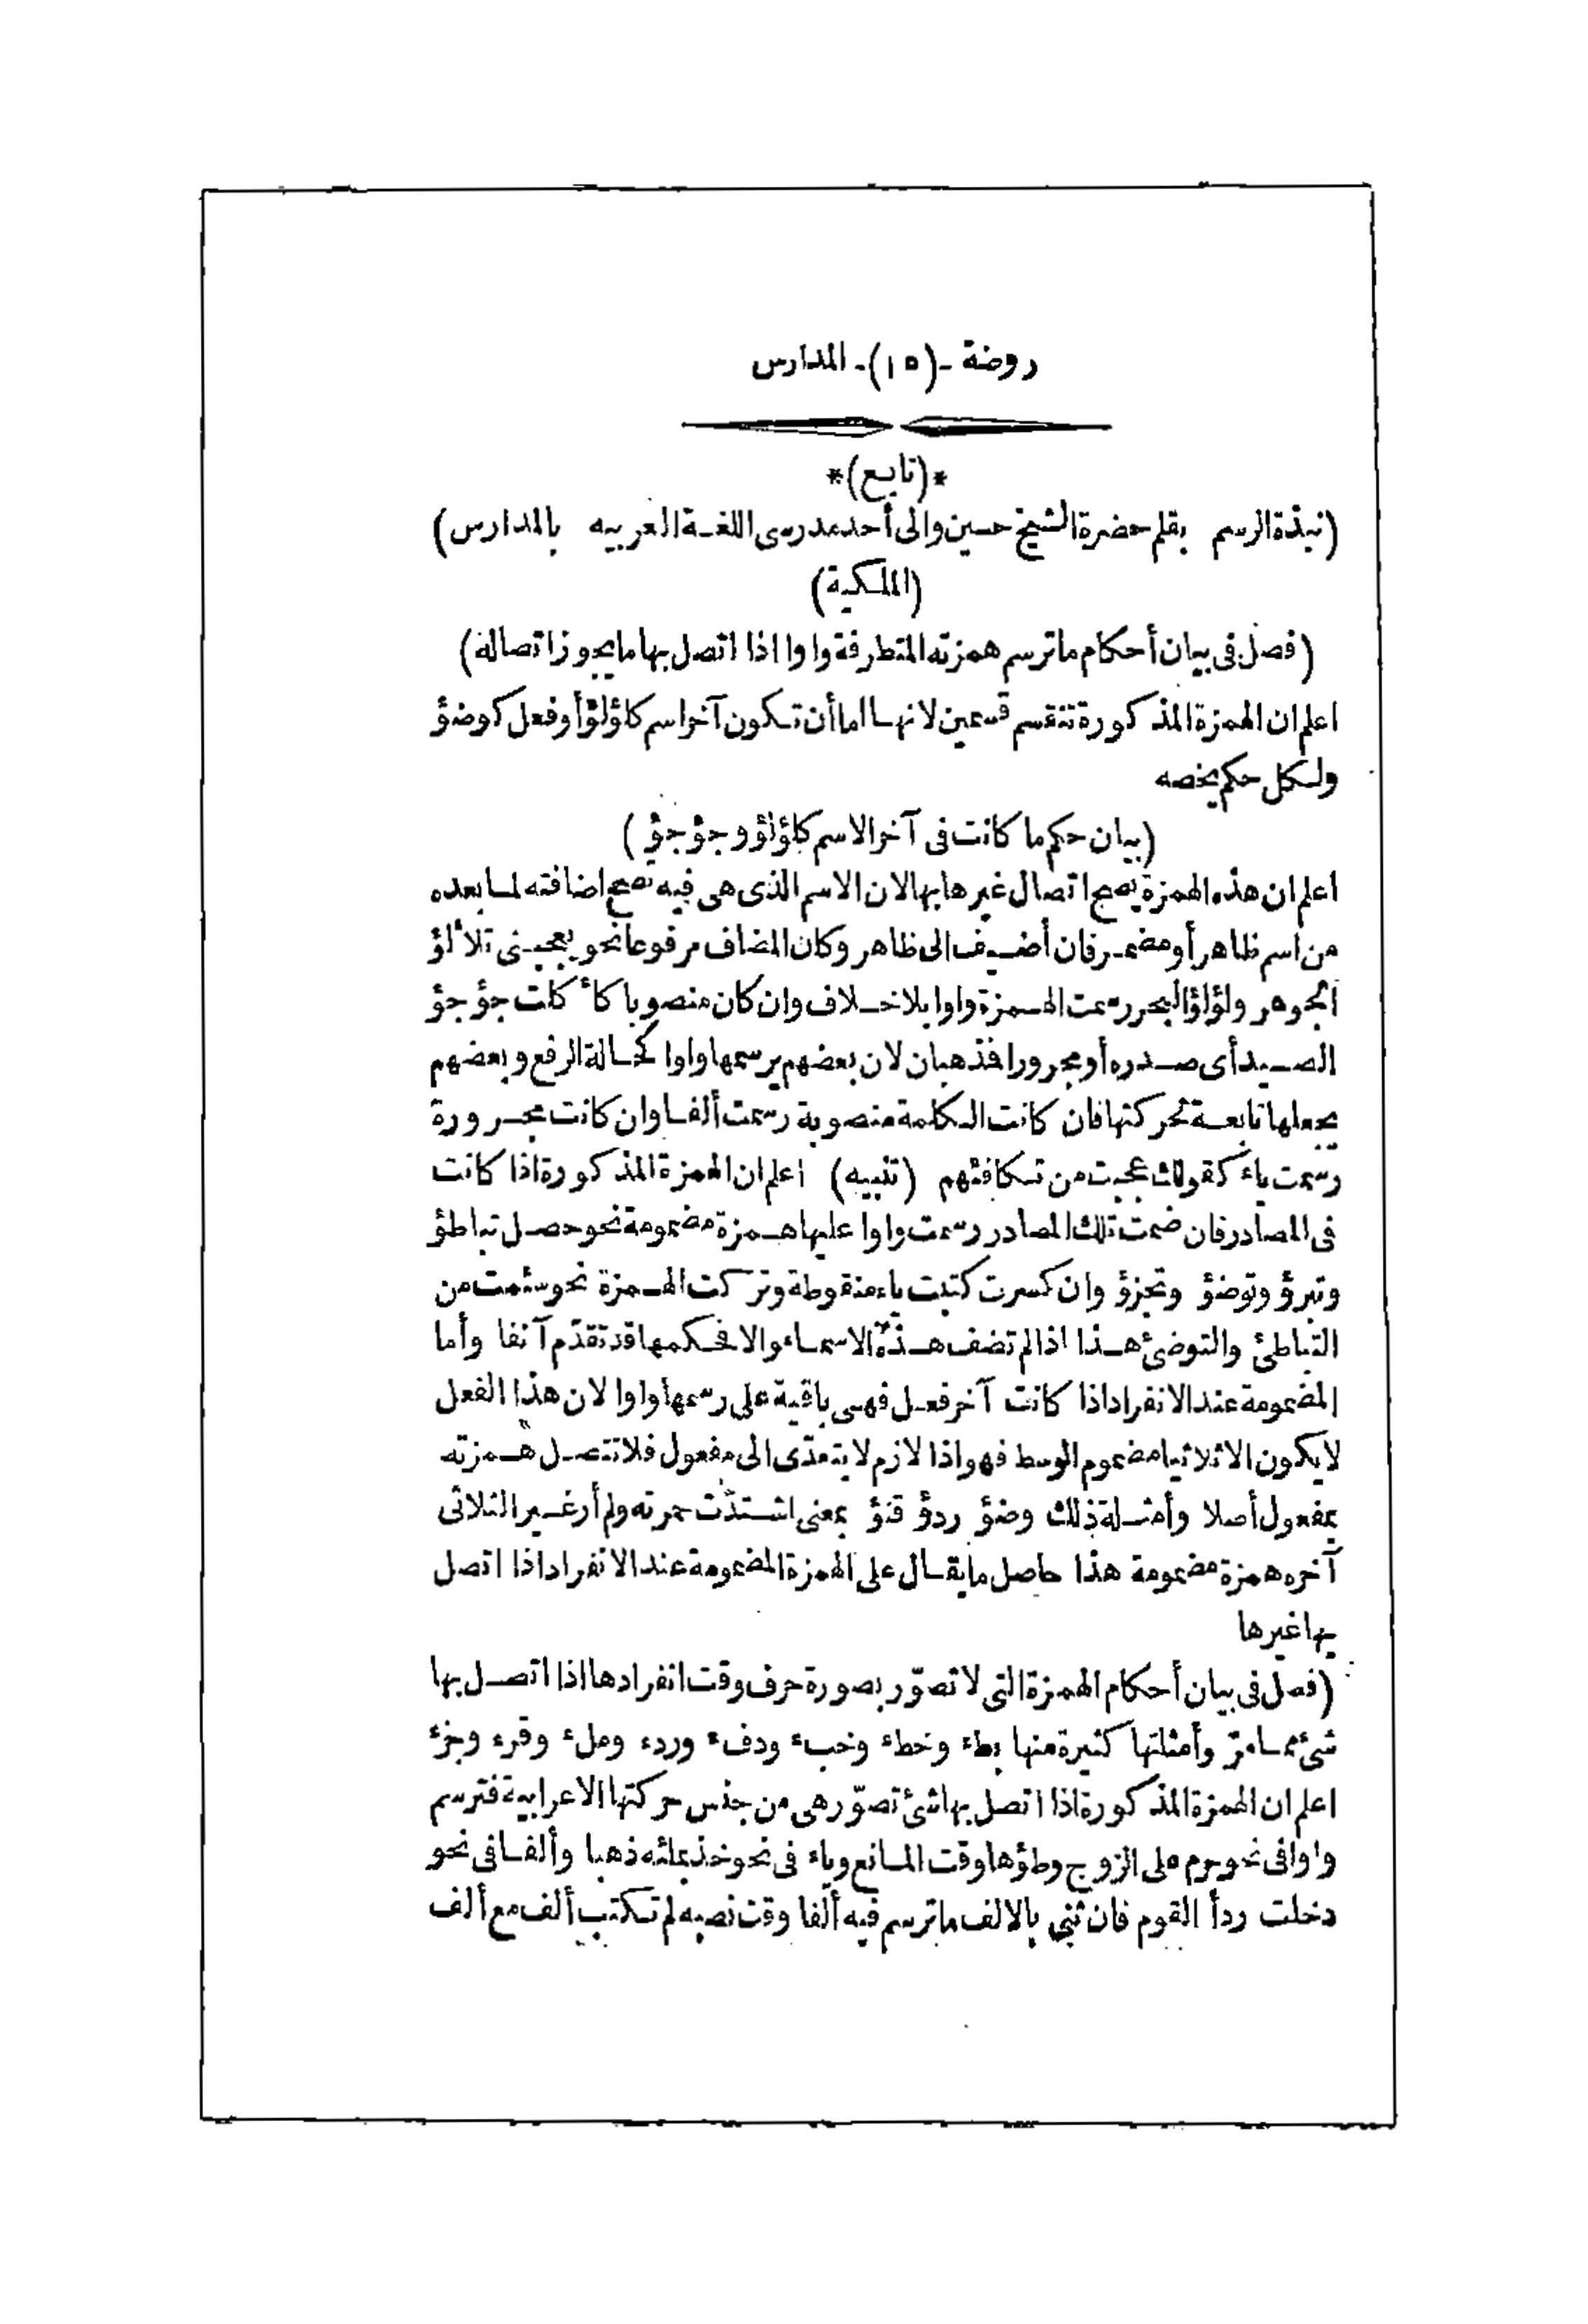 روضة -(١٥)- المدارس
*(تابع)*
(نبذة الرسم بقلم حضرة الشيخ حسين والى أحد مدرسى اللغة العربيه بالمدارس)
(الملكية)
(فصل فى بيان أحكام ما ترسم همزته المتطرفة واوا اذا اتصل بها ما يجوز اتصاله)
اعلم ان الهمزة المذكورة تنقسم قسمين لانها اما أن تكون آخر اسم كلؤلؤ أو فعل كوضؤ
ولكل حكم يخصه
(بيان حكم ما كانت فى آخر الاسم كلؤلؤ وجؤجؤ)
اعلم ان هذه الهمزة يصح اتصال غيرها بها لان الاسم الذى هى فيه تصح اضافته لما بعده
من اسم ظاهر أو مضمر فان أضيف الى ظاهر وكان المضاف مرفوعا نحو يعجبنى تلألؤ
الجوهر ولؤلؤ البحر رسمت الهمزة واوا بلا خلاف وان كان منصوبا كأكلت جؤجؤ
الصيد أى صدره أو مجرورا فذهبان لان بعضهم يرسمها واوا كحالة الرفع وبعضهم
يجعلها تابعة لحركتها فان كانت الكلمة منصوبة رسمت ألفا وان كانت مجرورة
رسمت ياء كقولك عجبت من تكافئهم (تنبيه) اعلم ان الهمزة المذكورة اذا كانت
فى المصادر فان ضمت تلك المصادر رسمت واوا عليها همزة مضمومة نحو حصل تباطؤ
وتبرؤ وتوضؤ وتجزؤ وان كسرت كتبت ياء منقوطة وتركت الهمزة نحو سئمت من
التباطئ والتوضئ هذا اذا لم تضف هذه الاسماء والا فحكمها قد تقدّم آنفا وأما
المضمومة عند الانفراد اذا كانت آخر فعل فهى باقية على رسمها واوا لان هذا الفعل
لا يكون الا ثلاثيا مضموم الوسط فهو اذا لازم لا يتعدّى الى مفعول فلا تتصل همزته
بمفعول أصلا وأمثلة ذلك وضؤ ردؤ قنؤ بمعنى اشتدّت حمرته ولم أر غير الثلاثى
آخره همزة مضمومة هذا حاصل ما يقال على الهمزة المضمومة عند الانفراد اذا اتصل
بها غيرها
(فصل فى بيان أحكام الهمزة التى لا تصوّر بصورة حرف وقت انفرادها اذا اتصل بها
شئ مما مرّ وأمثلتها كثيرة منها بطء وخطء وخبء ودفء وردء وملء وقرء وجزء
اعلم ان الهمزة المذكورة اذا اتصل بها شئ تصوّر هى من جنس حركتها الاعرابية فترسم
واوا فى نحو حرم على الزوج وطؤها وقت المانع وياء فى نحو خذ بملئه ذهبا وألفا فى نحو
دخلت ردأ القوم فان ثنى بالالف ما ترسم فيه ألفا وقت نصبه لم تكتب ألف مع ألف